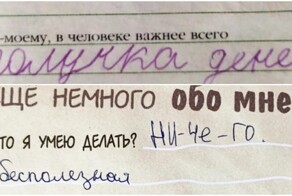 -моему, в человеке важнее всего
получка дене
ЩЕ НЕМНОГО ОБО МНЕ
ТО Я УМЕЮ ДЕЛАТЬ? НИ-ЧЕ-ГО.
бесполезная